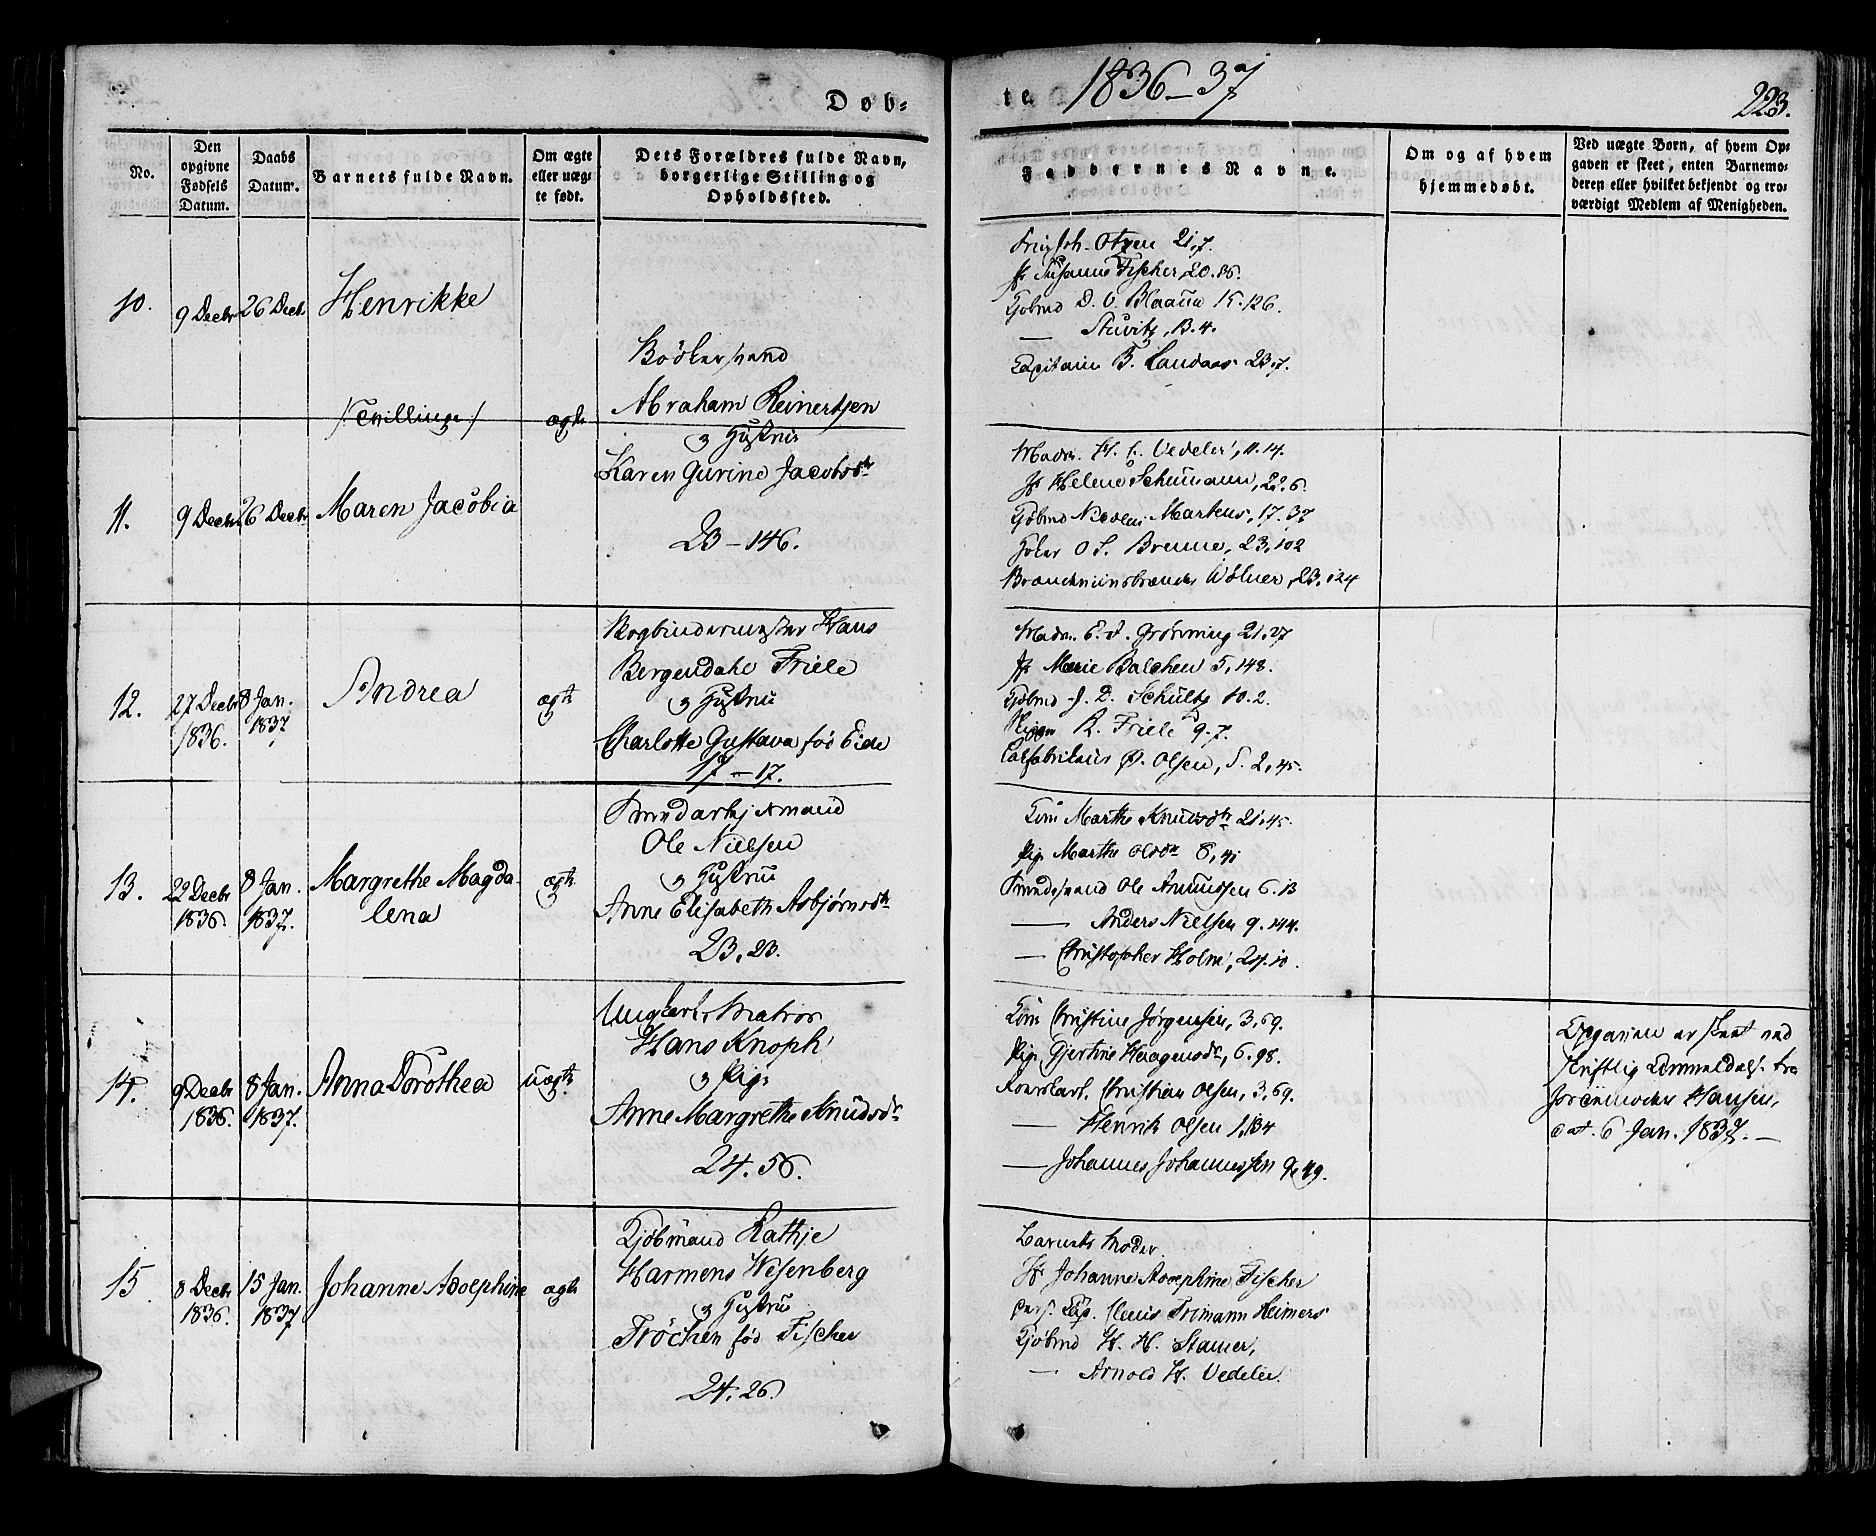 Døb-
te 1836-37
223.
No.
Den opgivne Fødsels Datum.
Daabs Datum.
Barnets fulde Navn.
Om ægte eller uæg-
te født.
Dets Forældres fulde Navn,
borgerlige Stilling og
Opholdssted.
Faddernes Navne.
Om og af hvem
hjemmedøbt.
Ved uægte Børn, af hvem Op-
gaven er skeet, enten Barnemo-
deren eller hvilket bekjendt og tro-
værdigt Medlem af Menigheden.
10.
9 Decbr
26 Decb.
Henrikke
/:Tvillinge/
ægte
Bødkersvend
Abraham Reinertsen
og Hustrue
Karen Gurine Jacobsdtr
23-146.
Joh. Otzen 21,7.
Jfr Susanne Fischer, 20.86.
Kjøbmd D. V. Blaauw 15.126.
— Stuvitz, B.4.
Capitain B. Landaas 23.7.
11.
9 Decbr
26 Decbr
Maren Jacobia
Madm. H. C. Vedeler, 11.14.
Jfr Helene Schumann, 22.6.
Kjøbmd Nicolai Martens, 17.37
O S. Brenne, 23,102
Wølner, 23.124
12.
27 Decbr
1836.
8 Jan.
1837
Andrea
ægte
Bogbindermester Hans
Bergendahl Friele
og Hustrue
Charlotte Gustava fød Eide
17-17.
Madm. E. J. Grønning 21.27
Jfr Marie Balchen 5,148.
Kjøbmd J. D. Schultz 10.2.
R. Friele 9.7.
Olsen, S. 2,45.
13.
22 Decbr
1836.
8 Jan.
1837.
Margrethe Magda
lena
ægte
Brændarbeidsmand
Ole Nielsen
og Hustrue
Anne Elisabeth Asbjørnsdtr
23,23.
Kone Marthe Knudsdtr 21.45.
Pige Marthe Olsdtr 8,41
Ole Amundsen 6.13
— Anders Nielsen 9.144.
— Christopher Holm, 24.10.
14.
9 Decbr
1836.
8 Jan.
1837.
Anna Dorothea
uægte
Ungkarl, Matros
Hans Knoph
og Pige
Anne Margrethe Knudsdtr
24.56.
Kone Christine Jørgensen, 3,69.
Pige Gjertine Haagensdtr, 6.98.
Christian Olsen, 3,69.
— Henrik Olsen 1,134
— Johannes Johannessen 9,49.
Opgaven er skeet ved
skriftlig Anmeldelse fra
Jordemoder Hansen,
dat. 6 Jan. 1837.—
15.
8 Decbr
1836.
15 Jan.
1837
Johanne Adolphine
ægte
Kjøbmand Rathje
Harmens Wesenberg
og Hustrue
Trøchen fød Fischer
24.26.
Barnets Moder.
Jfr Johanne Adolphine Fischer
Claus Frimann Reimers
Kjøbmd H. H. Stamer,
— Arnold H. Vedeler.